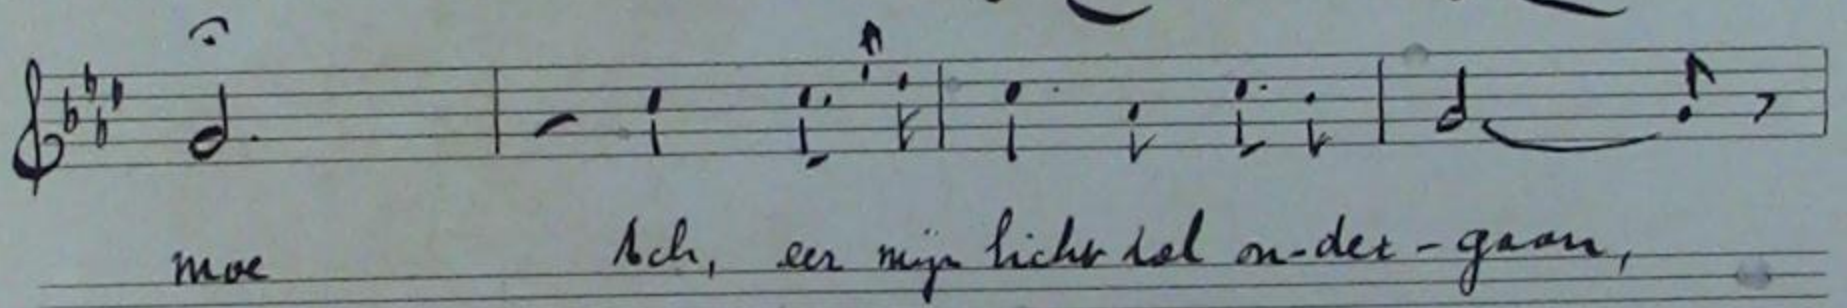 moe Ach, eer mijn licht zal on-der-gaan,